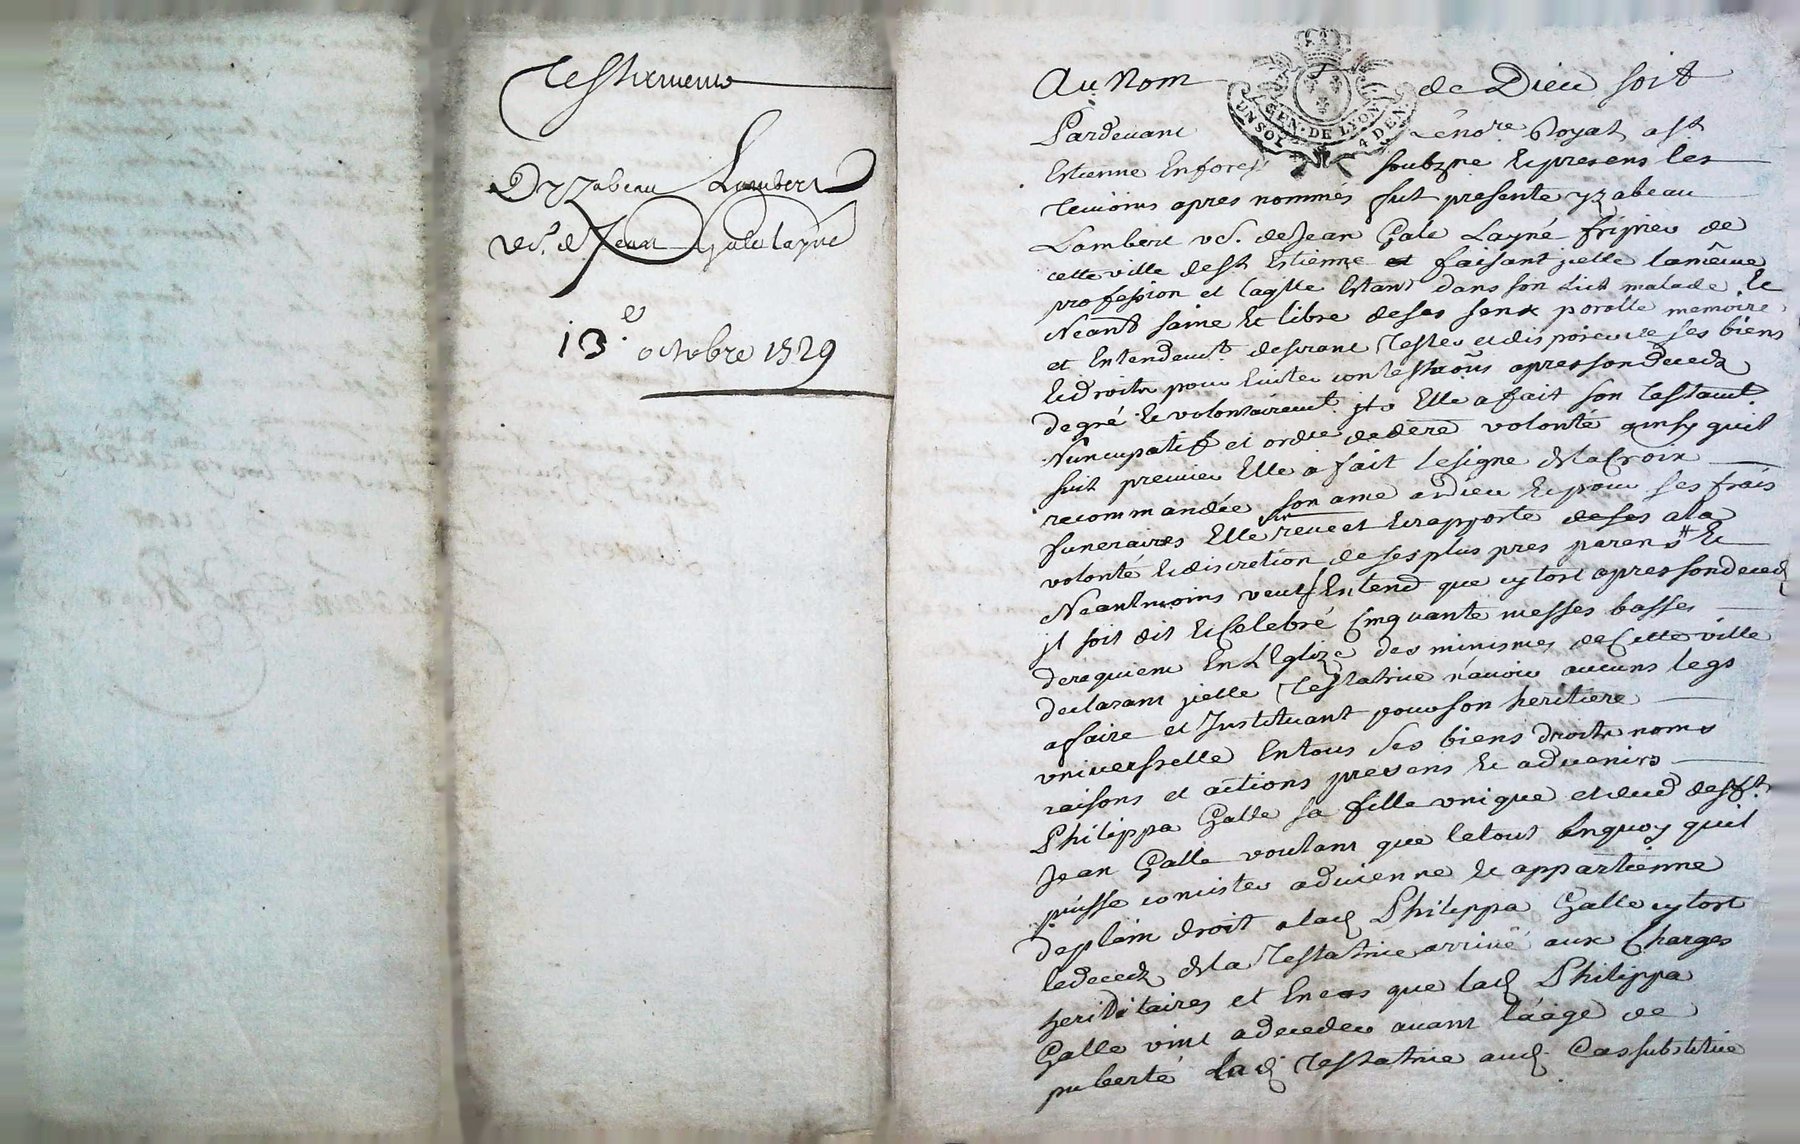 Testament
D'yzabeau Lambert
ve. de Jean Gale layné
13.e octobre 1729
Au Nom de Dieu soit
GEN. DE LYON
UN SOL 4 DEN.
Pardevant Le no.re Royal a St
Estienne en forest soubzne et presens les
temoins apres nommés fut presente yzabeau
Lambert ve. de Jean Gale Layné fripier de
cette ville de St Estienne et faisant jcelle la même
profession et laqlle estant dans son Lict malade
Neant saine et libre de ses sens parolle memoire
et Entendemt. desirant tester et disposer de ses biens
et droits pour Eviter contestaõns apres son decedz
de gré et volontairemt. Elle a fait son testamt.
Nuncupatif et ordre de dere. volonté ainsy quil
suit premier Elle a fait le signe de la Croix
recommandée son ame a dieu et pour ses frais
funeraires Elle remet et rapporte de ses a la
volonte et discretion de ses plus pres parens et
Neantmoins veut Entend que cytost apres son decedz
jl soit dit et Celebré Cinquante messes basses
de requiem En L'Eglize des minismes de Cette ville
declarant jcelle Testatrice n'avoir aucuns legs
a faire et Instituant pour son heritiere
vniversselle En tous ses biens droits noms
raisons et actions presens et advenirs
Philippa Galle sa fille vnique et dud deft.
Jean Galle voulant que le tout En quoy quil
puisse consister advienne et appartienne
de plain droit a lad Philippa Galle cytost
le decedz de la Testatrice arrivé aux Charges
heriditaires et En cas que lad Philippa
Galle vint a deceder avant l'áage de
puberté lad Testatrice aud Cas substitue